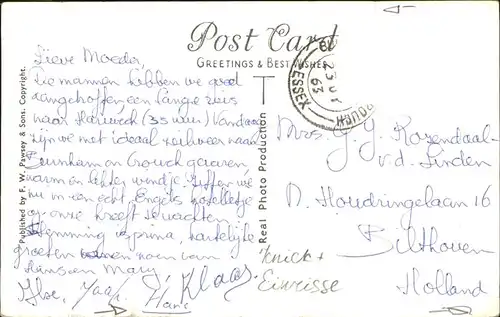 Post Card
GREETINGS & BEST WISHES
Published by F. W. Pawsey & Sons. Copyright.
Real Photo Production
ESSEX
63
Lieve Moeder,
Die mannen hebben we goed
aangetroffen een lange reis
naar Harwich (35 uur) Vandaar
zijn we met ideaal zeilweer naar
Burnham on Crouch gevaren,
warm en lekker windje. Zitten we
nu in een echt Engels hotelletje
op onze kreeft te wachten
Stemming is prima, hartelijke
groeten van
Hans en Mary
Klaas
Ilse, Jaap, Hans
Mrs. J. J. Rozendaal-
v.d. Linden
D. Houdringelaan 16
Bilthoven
Holland
knick +
Einrisse